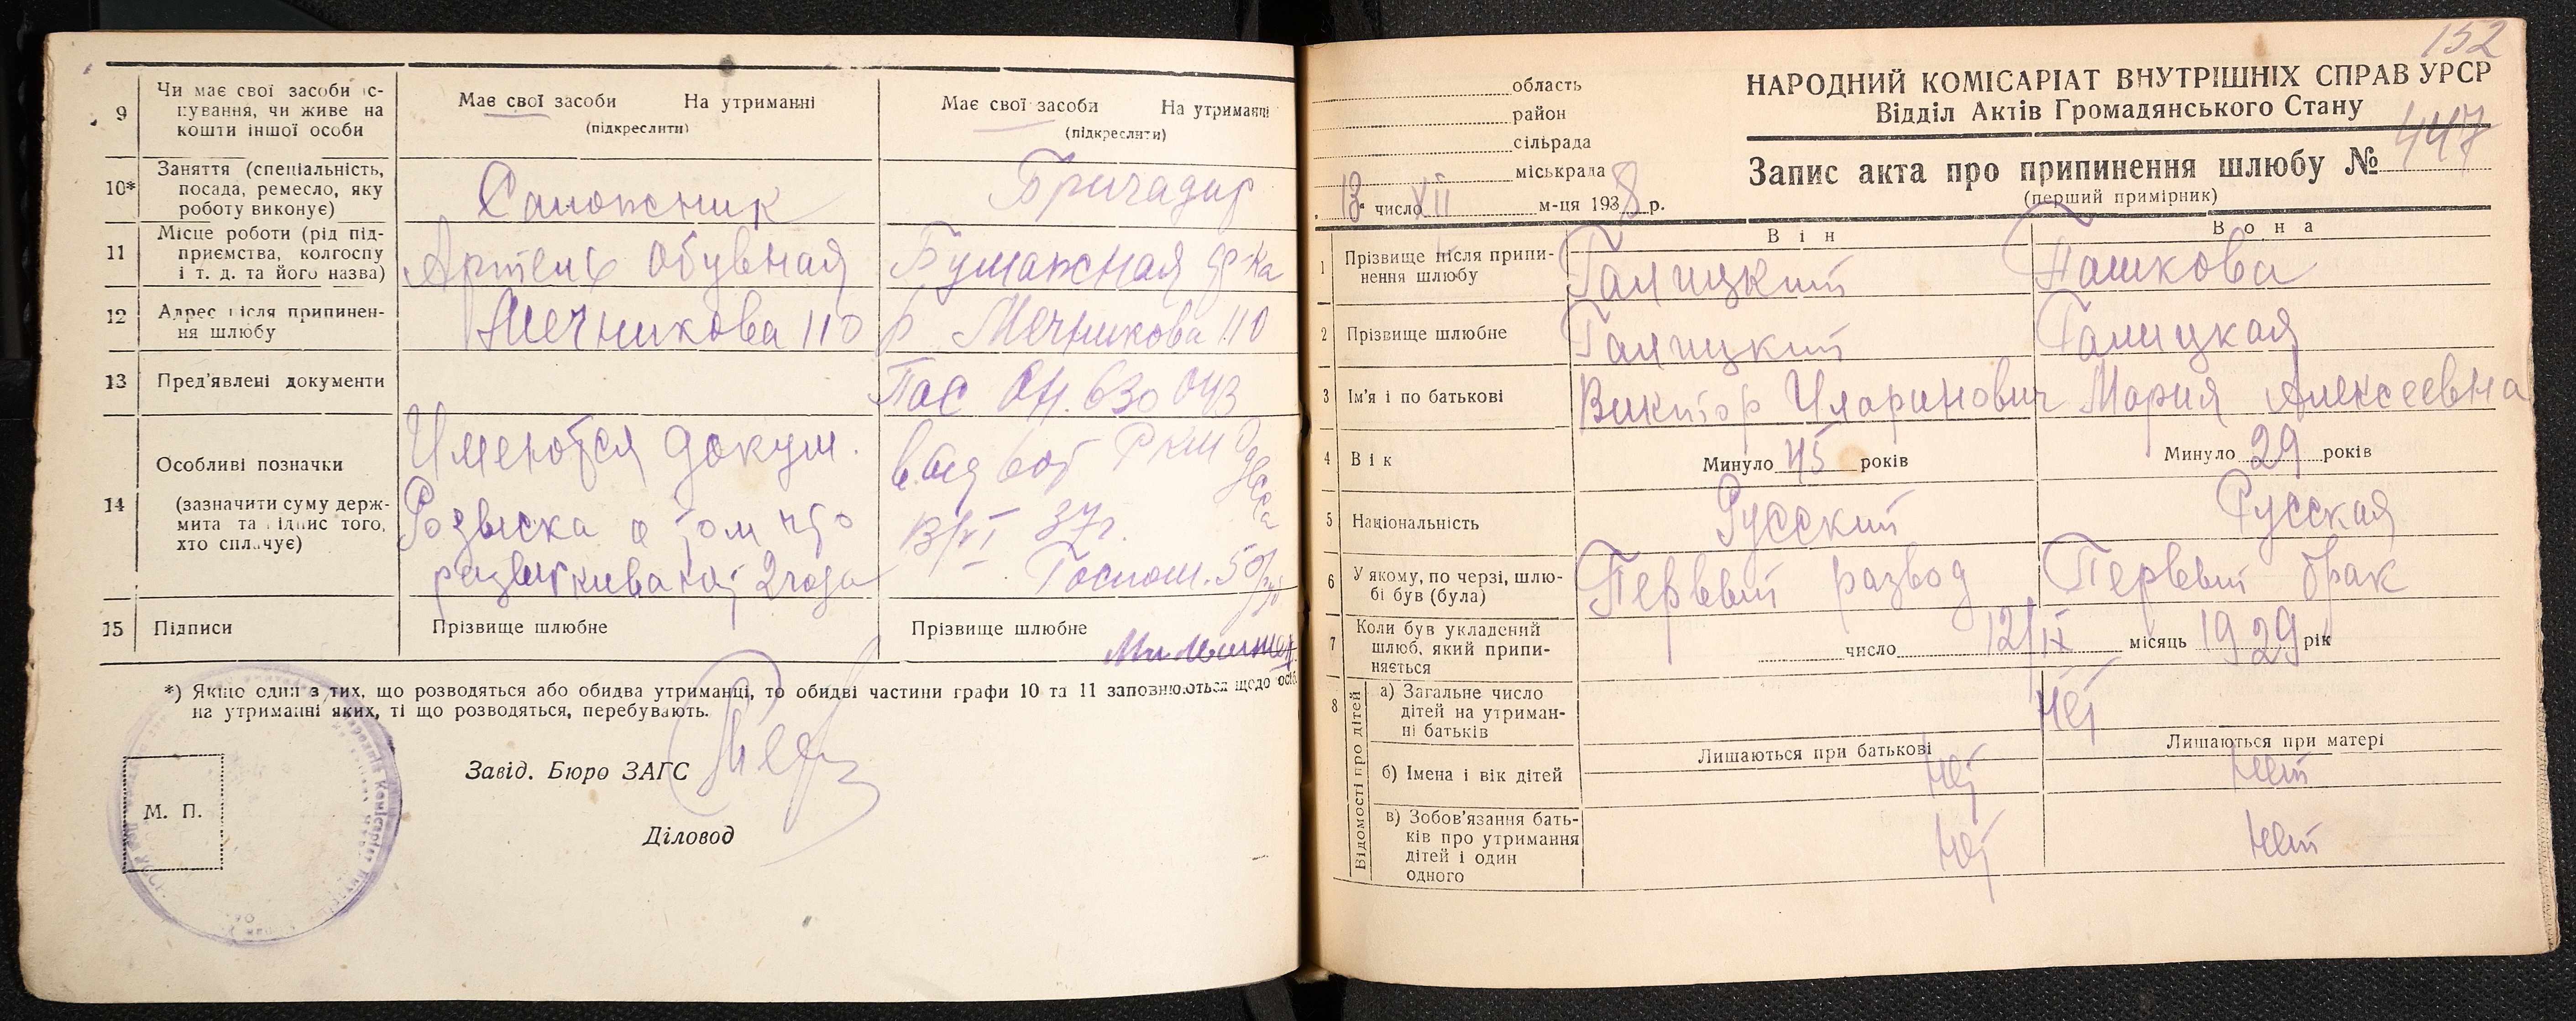 9
Чи має свої засоби іс-
нування, чи живе на
кошти іншої особи
Має свої засоби На утриманні
(підкреслити)
Має свої засоби На утриманні
(підкреслити)
10*
Заняття (спеціальність,
посада, ремесло, яку
роботу виконує)
Сапожник
Бригадир
11
Місце роботи (рід під-
приємства, колгоспу
і т. д. та його назва)
Артель Обувная
Бумажная ф-ка
12
Адрес після припинен-
ня шлюбу
Мечникова 110
Мечникова 110
13
Пред'явлені документи
Пас ОН. 630 043
14
Особливі позначки
(зазначити суму держ-
мита та підпис того,
хто сплачує)
Имеются докум.
Розыска о том что
разыскивают 2 года
РКМ Одесса
37г.
Госпош. 50 руб
15
Підписи
Прізвище шлюбне
Прізвище шлюбне
*) Якщо один з тих, що розводяться або обидва утриманці, то обидві частини графи 10 та 11 заповнюються щодо осіб
на утриманні яких, ті що розводяться, перебувають.
Завід. Бюро ЗАГС
М. П.
Діловод
152
область
район
сільрада
міськрада
13 число XII м-ця 1938 р.
НАРОДНИЙ КОМІСАРІАТ ВНУТРІШНІХ СПРАВ УРСР
Відділ Актів Громадянського Стану
Запис акта про припинення шлюбу № 447
(перший примірник)
Він
Вона
1
Прізвище після припи-
нення шлюбу
Галицкий
Пашкова
2
Прізвище шлюбне
Галицкий
Галицкая
3
Ім'я і по батькові
Виктор Иларинович
Мария Алексеевна
4
Вік
Минуло 45 років
Минуло 29 років
5
Національність
Русский
Русская
6
У якому, по черзі, шлю-
бі був (була)
Первый развод
Первый брак
7
Коли був укладений
шлюб, який припи-
няється
число 12/IX місяць 1929 рік
8
Відомості про дітей
а) Загальне число
дітей на утриман-
ні батьків
нет
Лишаються при батькові
Лишаються при матері
б) Імена і вік дітей
нет
нет
в) Зобов'язання бать-
ків про утримання
дітей і один
одного
нет
нет